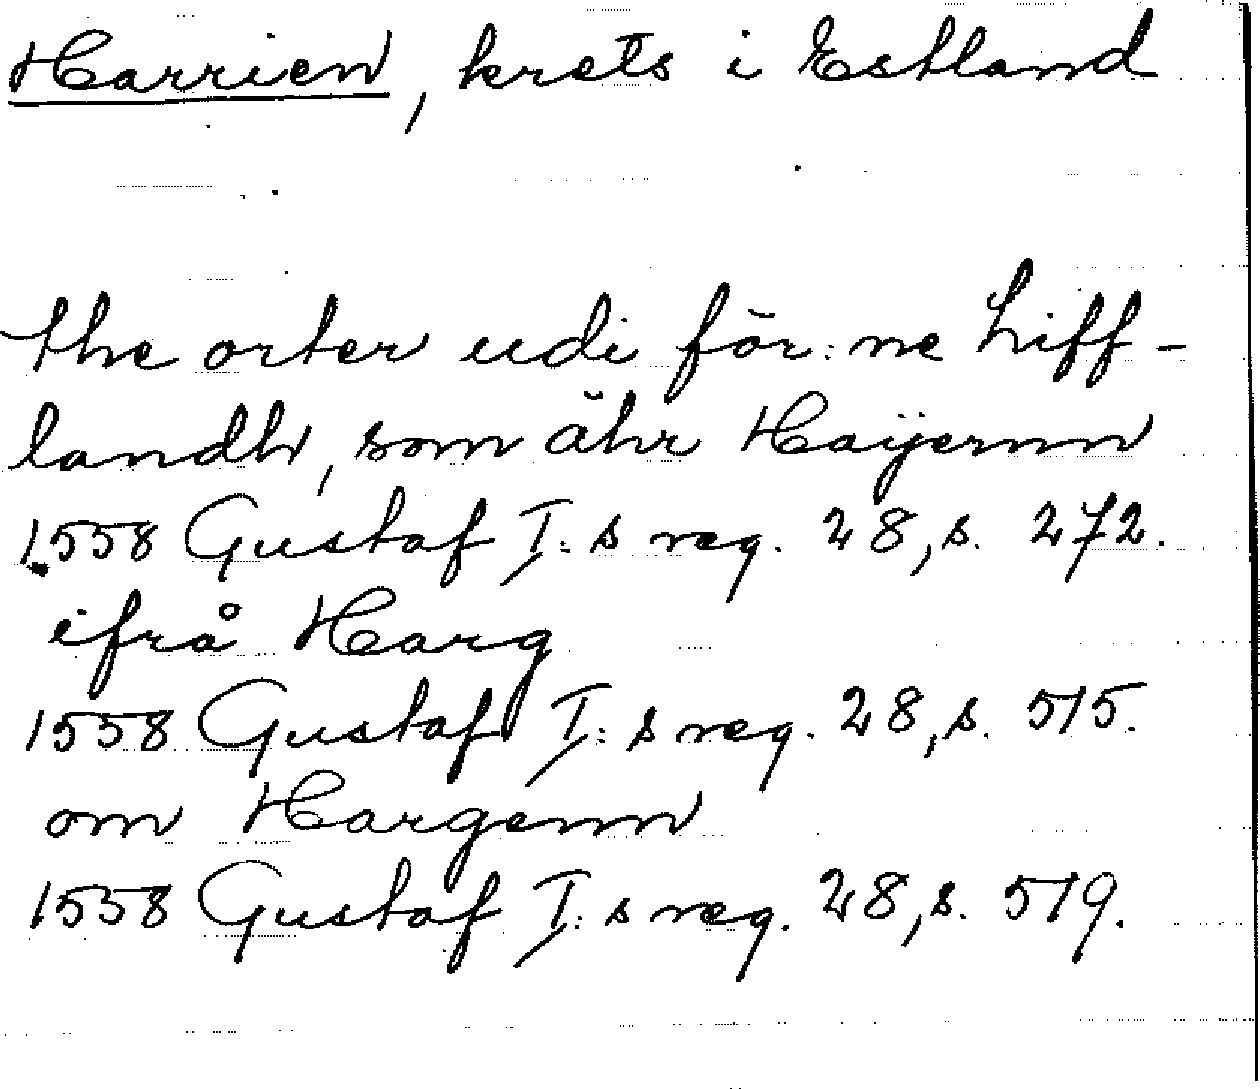 Harrien, krets i Estland
the orter udi för:ne Liff-
landh, som ähr Haÿernn
1558 Gustaf I:s reg. 28, s. 272.
ifrå Harg
1558 Gustaf I:s reg. 28, s. 515.
om Hargenn
1558 Gustaf I:s reg. 28, s. 519.